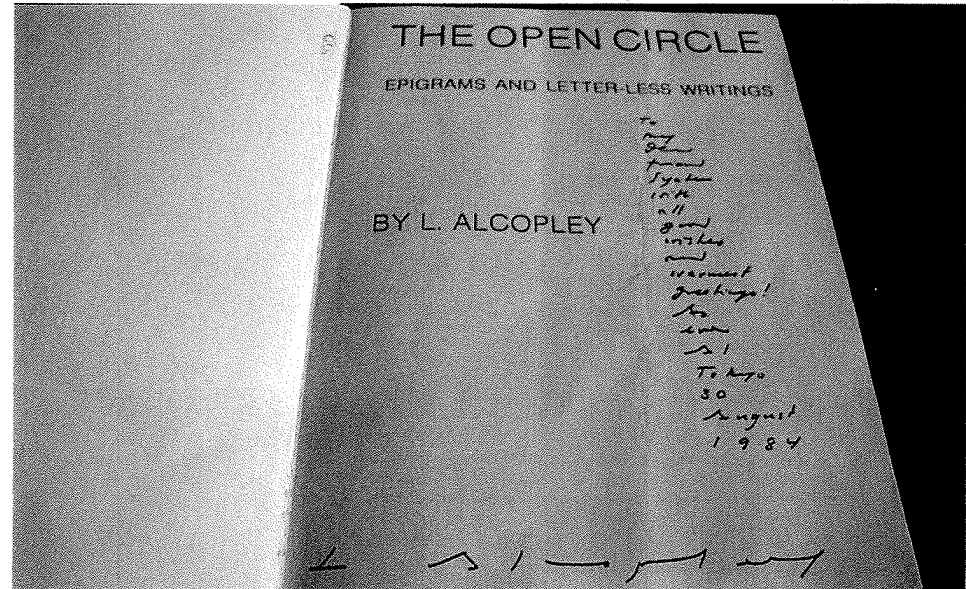 THE OPEN CIRCLE
EPIGRAMS AND LETTER-LESS WRITINGS
BY L. ALCOPLEY
To
my
dear
friend
with
all
good
wishes
and
warmest
greetings!
As
ever
Al
Tokyo
30
August
1984
L Alcopley